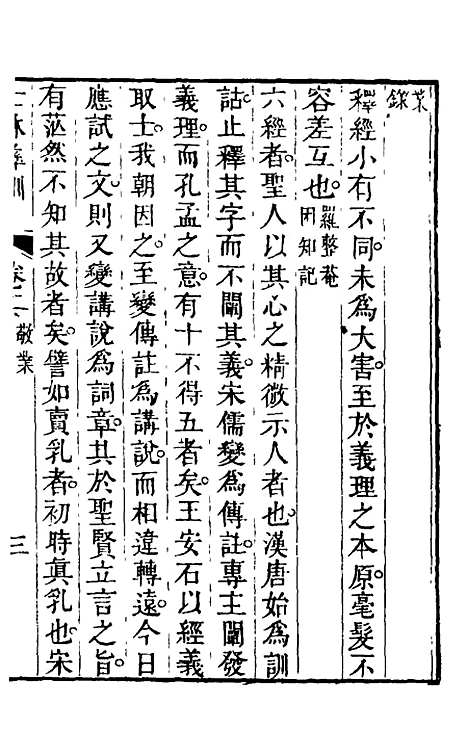 業
錄
釋經小有不同未爲大害至於義理之本原毫髮不
容差互也羅整菴困知記
六經者聖人以其心之精微示人者也漢唐始爲訓
詁止釋其字而不闡其義宋儒變爲傳註專主闡發
義理而孔孟之意有十不得五者矣王安石以經義
取士我朝因之至變傳註爲講說而相違轉遠今日
應試之文則又變講說爲詞章其於聖賢立言之旨
有茫然不知其故者矣譬如賣乳者初時眞乳也宋
士林彝訓 卷二 敬業 三